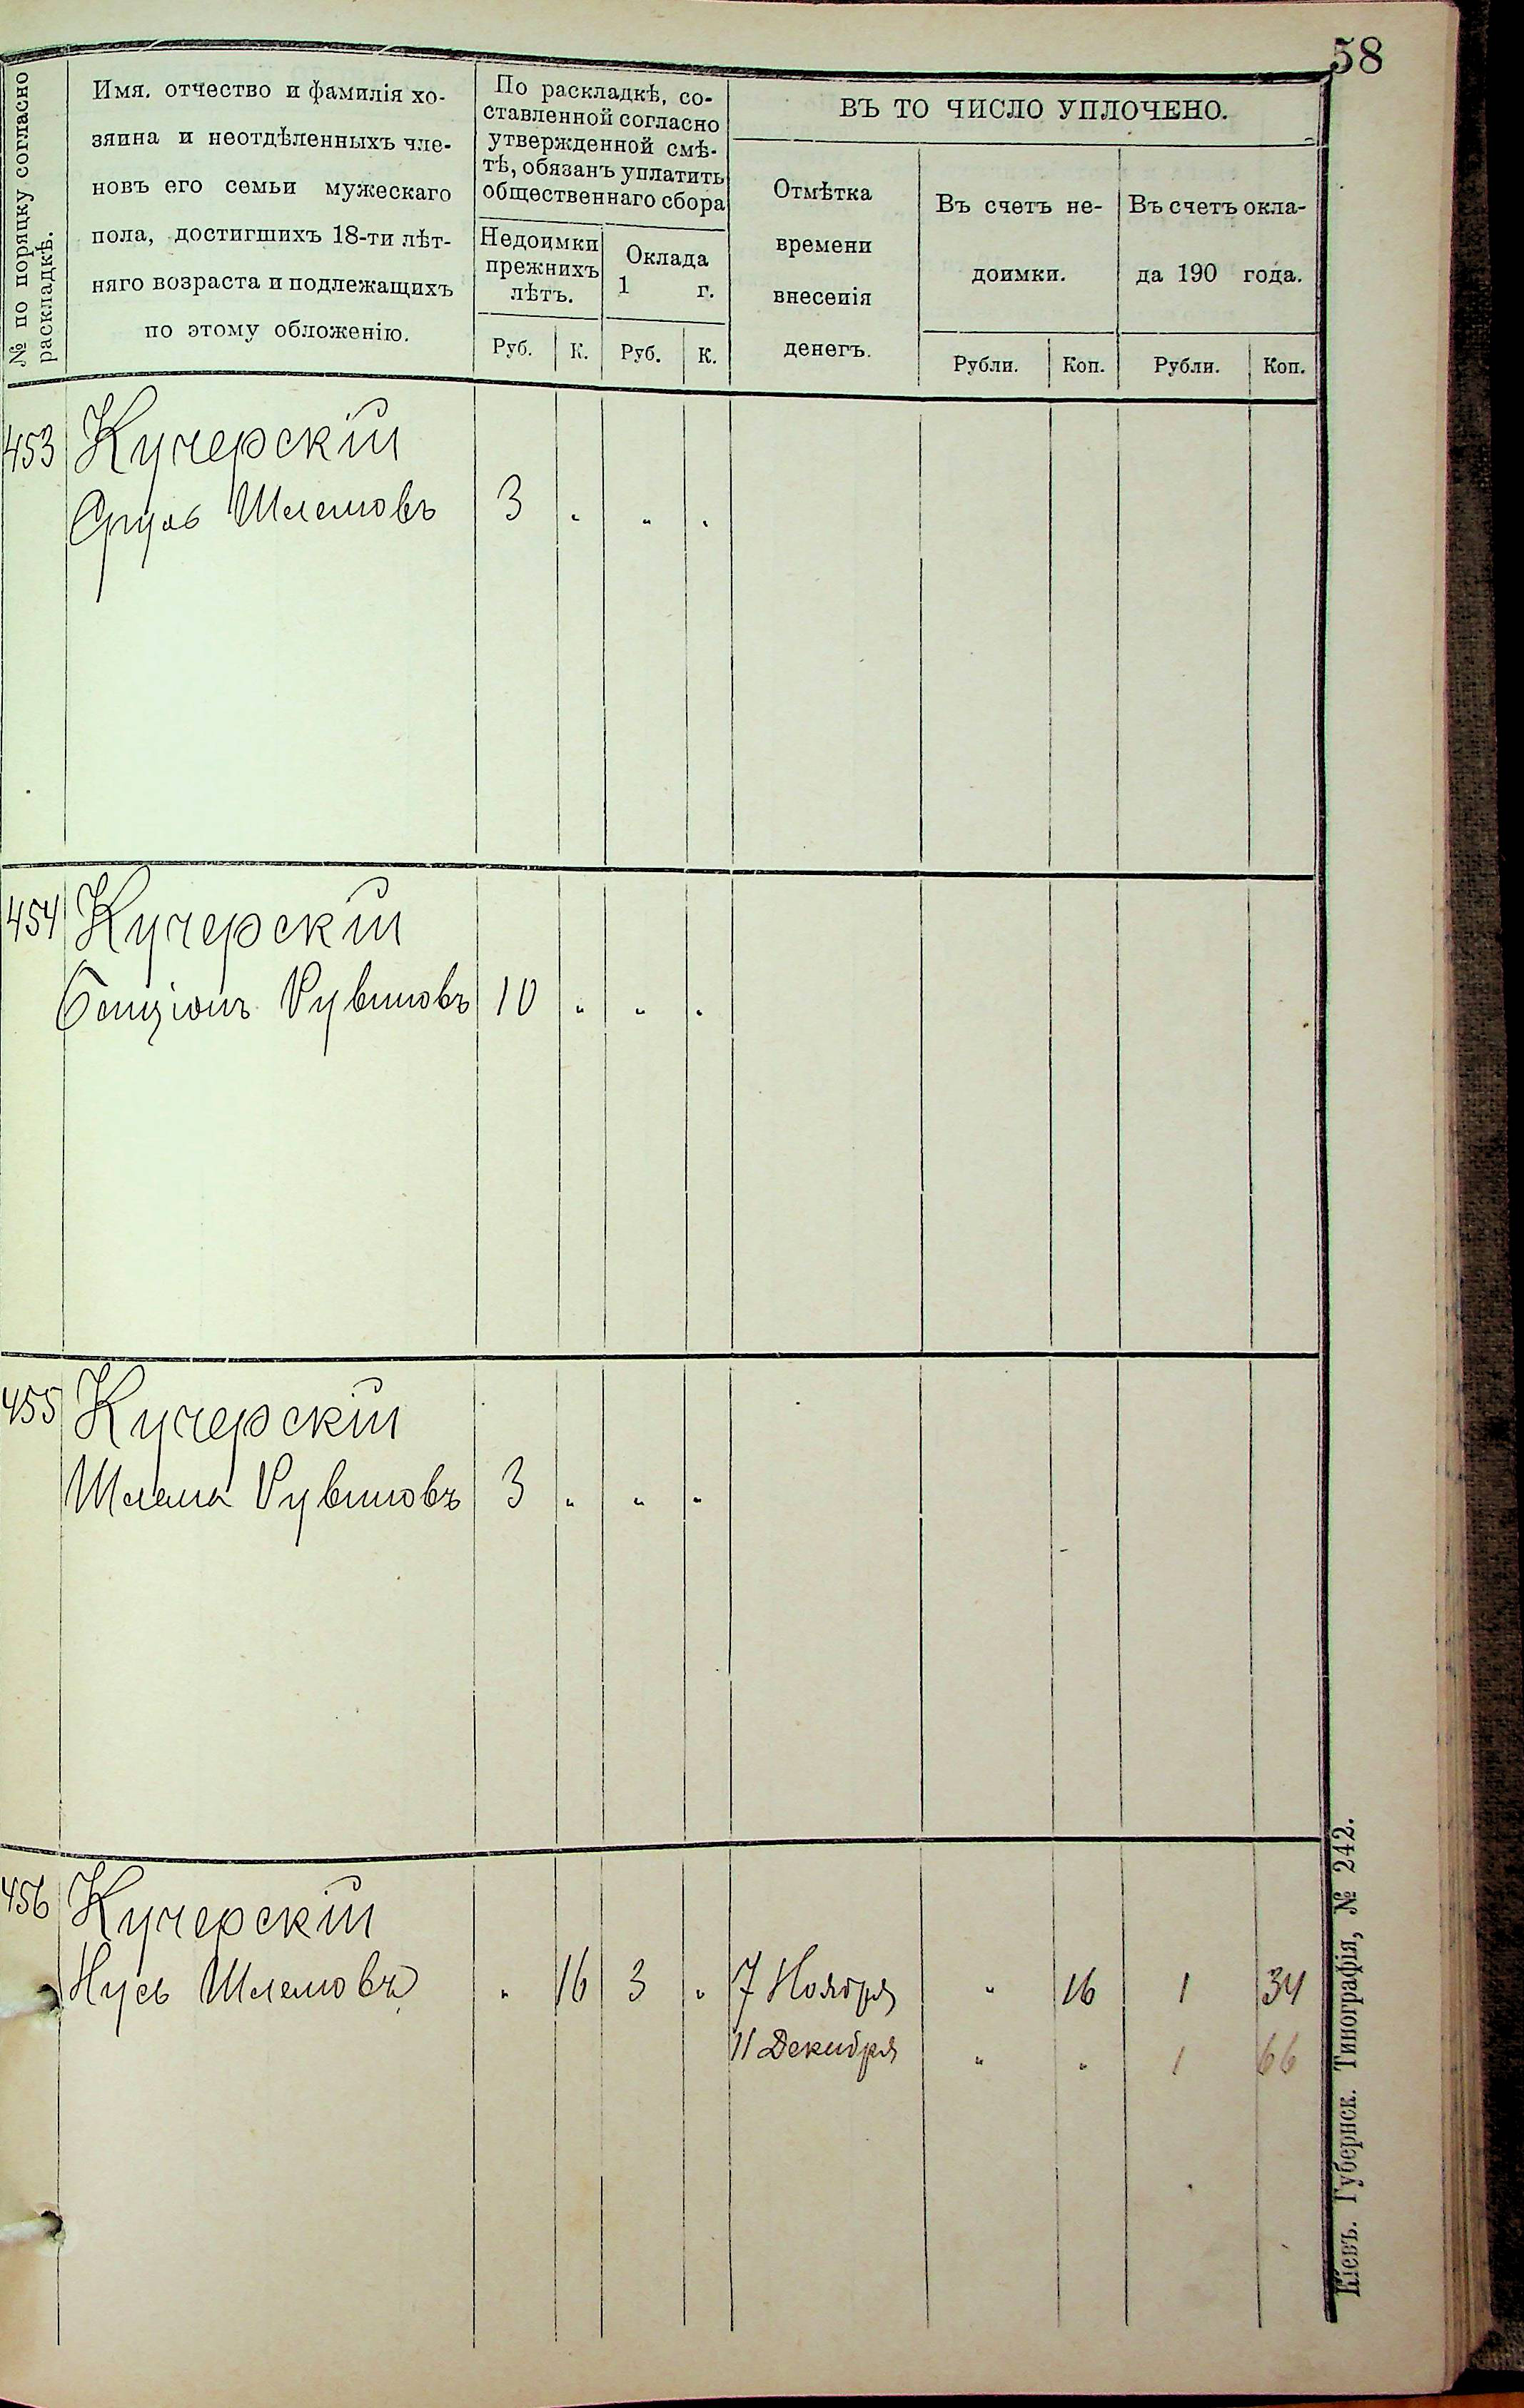 58
№ по порядку согласно
раскладкѣ.
Имя, отчество и фамилія хо-
зяина и неотдѣленныхъ чле-
новъ его семьи мужескаго
пола, достигшихъ 18-ти лѣт-
няго возраста и подлежащихъ
по этому обложенію.
По раскладкѣ, со-
ставленной согласно
утвержденной смѣ-
тѣ, обязанъ уплатить
общественнаго сбора
Недоимки
прежнихъ
лѣтъ.
Оклада
1 г.
Руб. К. Руб. К.
ВЪ ТО ЧИСЛО УПЛОЧЕНО.
Отмѣтка
времени
внесенія
денегъ.
Въ счетъ не-
доимки.
Въ счетъ окла-
да 190 года.
Рубли. Коп. Рубли. Коп.
453 Кучерскій
Сруль Шлемовъ 3 " " "
454 Кучерскій
Бенціонъ Рувиновъ 10 " " "
455 Кучерскій
Шлема Рувиновъ 3 " " "
456 Кучерскій
Нусь Шлемовъ " 16 3 " 7 Ноября " 16 1 34
11 Декабря " " 1 66
Кіевъ. Губернск. Типографія, № 242.